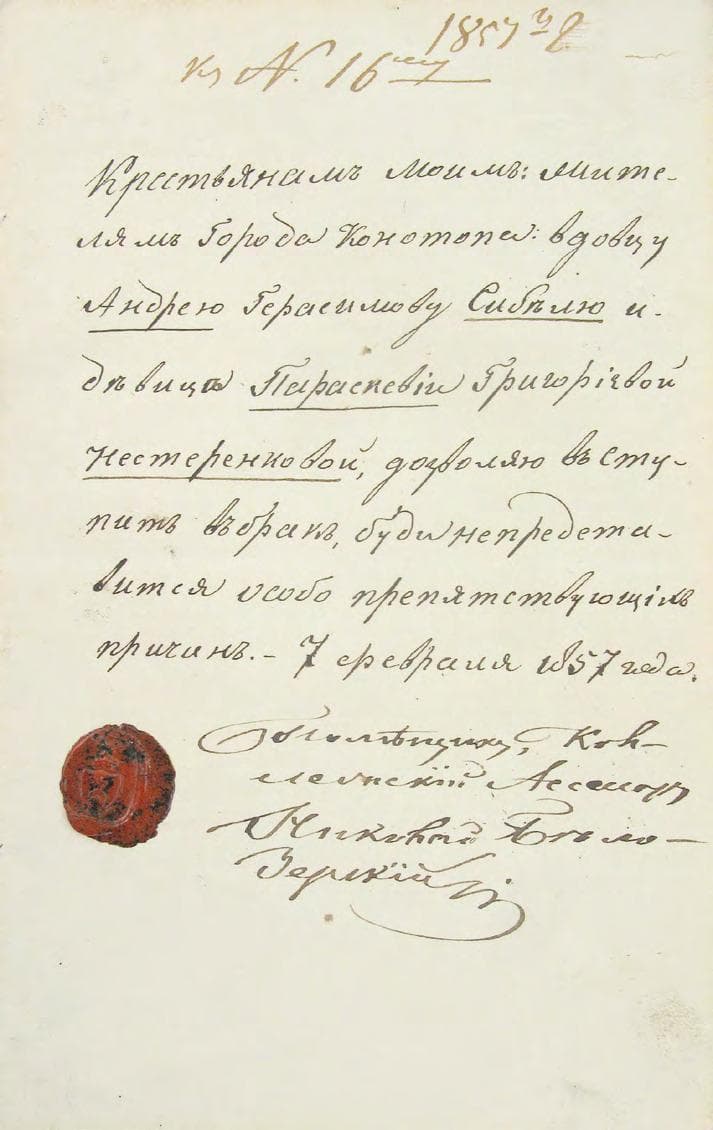 1857 г
къ N. 16му
Крестьянамъ моимъ: жите-
лямъ Города Конотопа: вдовцу
Андрею Герасимову Сибѣлю и
дѣвицѣ Параскевіи Григоріевой
Нестеренковой, дозволяю въсту-
пить въбракъ, буди непредста-
вится особо препятствующихъ
причинъ. - 7 февраля 1857 года.
Помѣщикъ, Кол-
лежскій Ассесоръ
Николай Бѣло-
зерскій